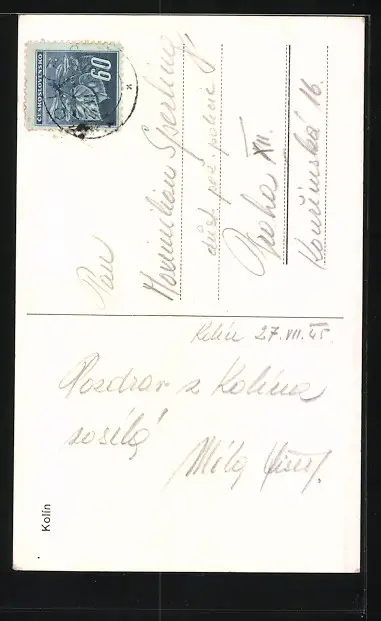 ČESKOSLOVENSKO
60
Pan
Maxmilian Sperling,
důst. pol. policie
Praha XII.
Kouřimská 16.
Kolín 27.VII.45
Pozdrav z Kolína
posílá
Kolín